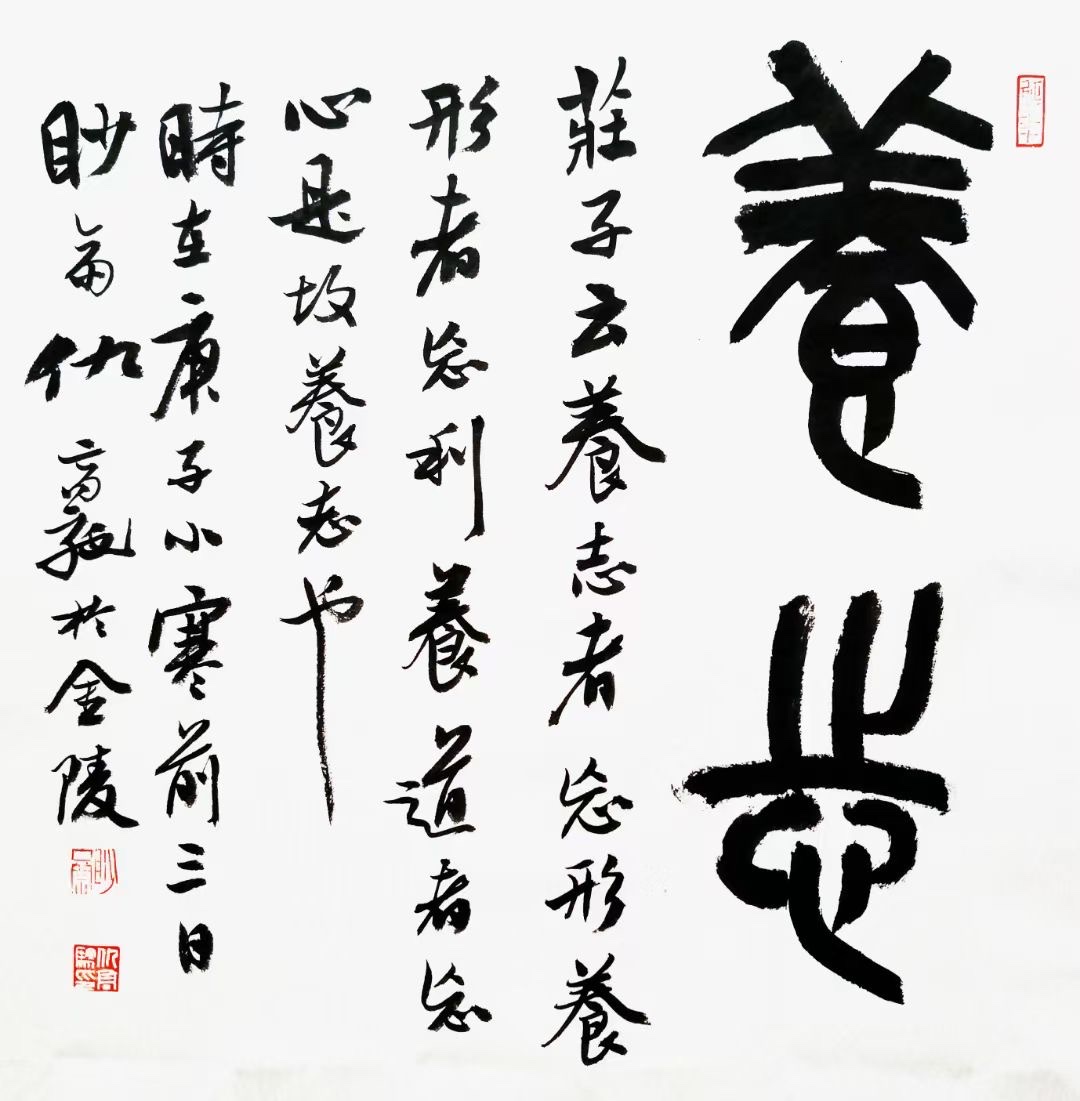 養志
莊子云養志者忘形養
形者忘利養道者忘
心是故養志也
時在庚子小寒前三日
眇翁仇高驰於金陵